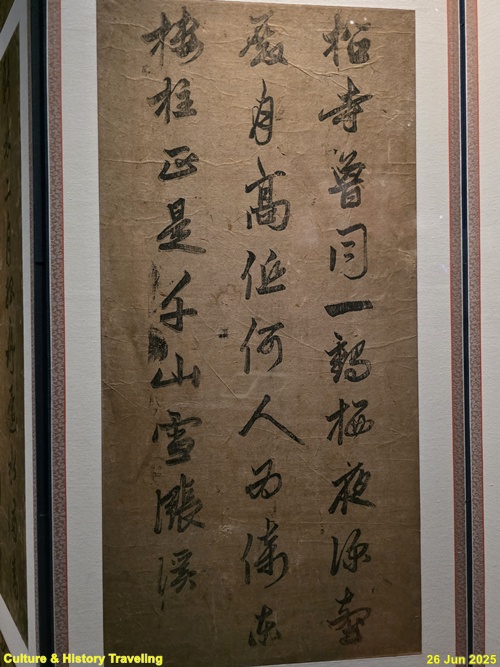 松寺曾同一鶴栖夜深臺
殿月高低何人為倚東
樓柱正是千山雪漲溪
Culture & History Traveling
26 Jun 2025